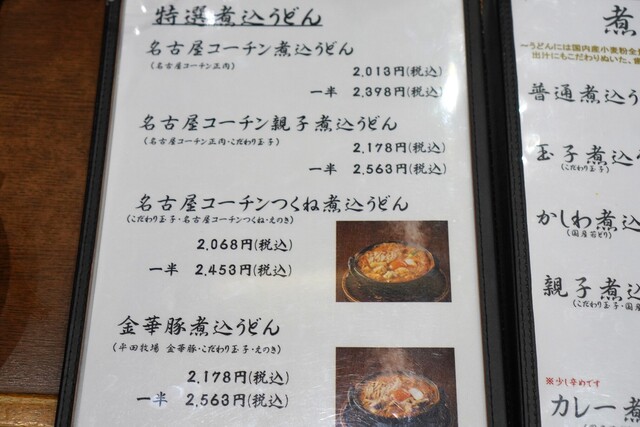 特選煮込うどん
名古屋コーチン煮込うどん
(名古屋コーチン正肉)
2,013円(税込)
一半 2,398円(税込)
名古屋コーチン親子煮込うどん
(名古屋コーチン正肉・こだわり玉子)
2,178円(税込)
一半 2,563円(税込)
名古屋コーチンつくね煮込うどん
(こだわり玉子・名古屋コーチンつくね・えのき)
2,068円(税込)
一半 2,453円(税込)
金華豚煮込うどん
(平田牧場 金華豚・こだわり玉子・えのき)
2,178円(税込)
一半 2,563円(税込)
煮
〜うどんには国内産小麦粉全
出汁にもこだわりぬいた、
普通煮込う
玉子煮込う
(こだわり玉子)
かしわ煮込
(国産若どり)
親子煮込
(こだわり玉子・国産
※少し辛めです
カレー煮